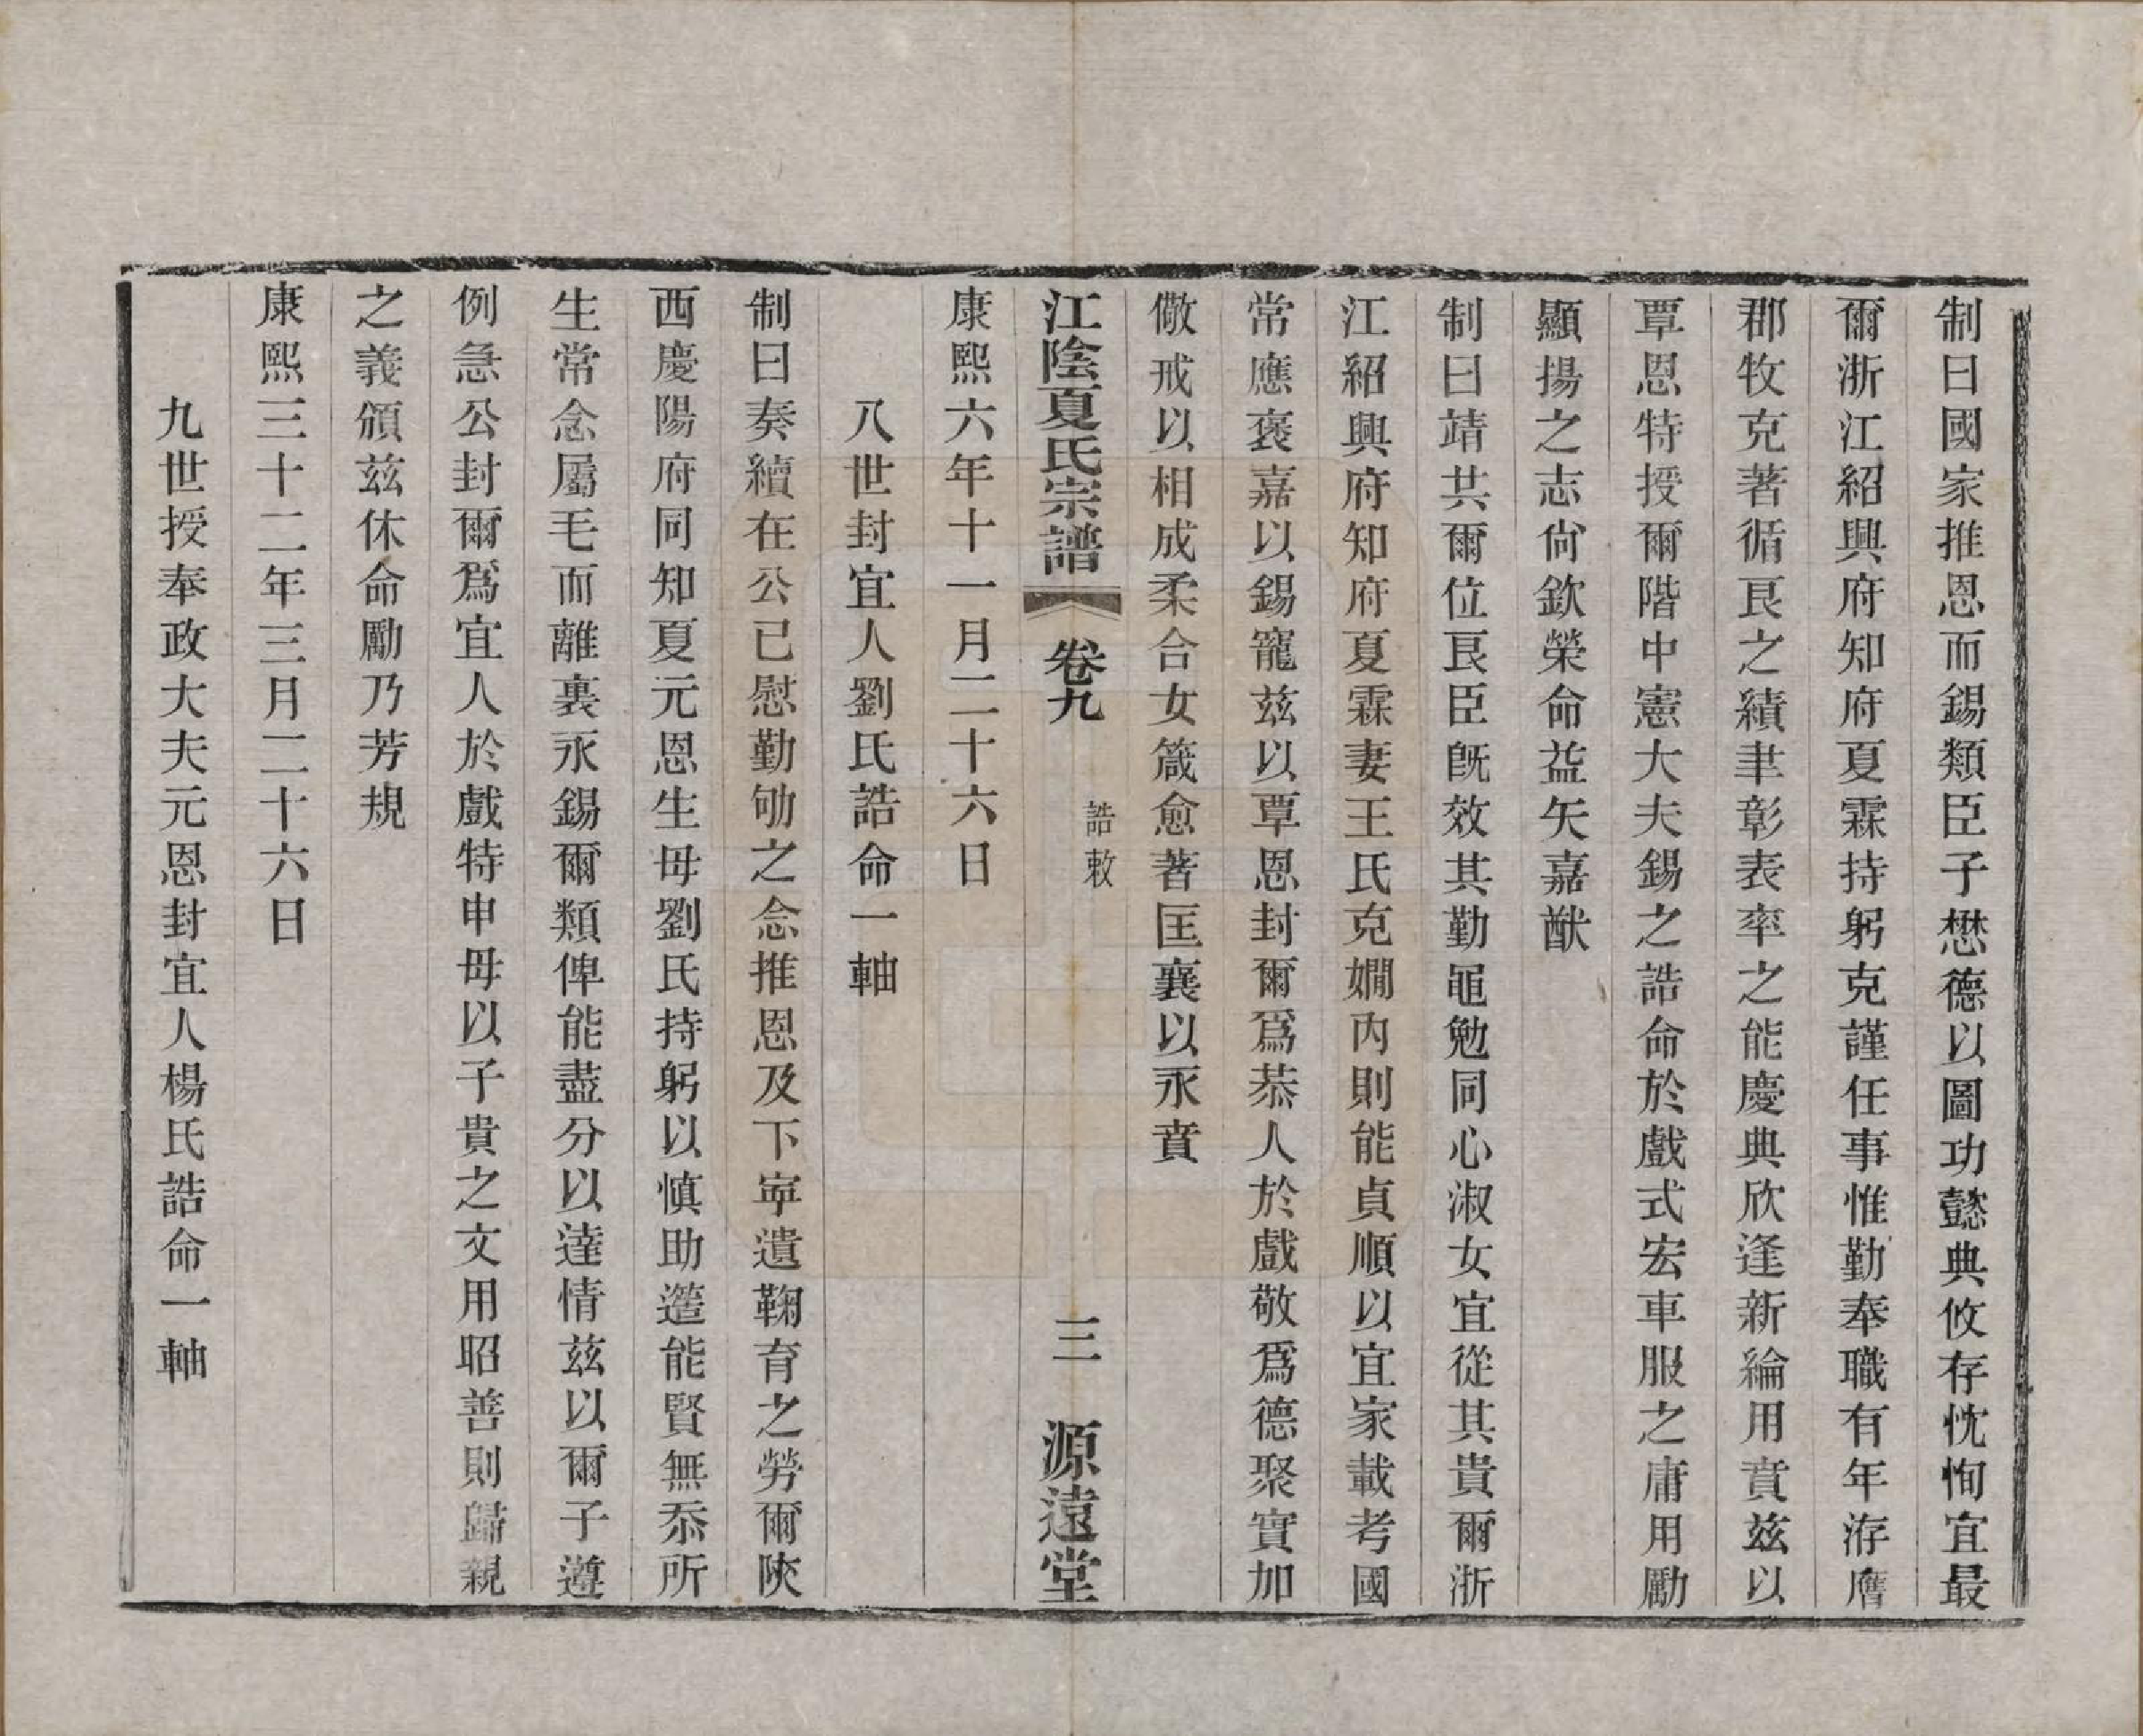 制曰國家推恩而錫類臣子懋德以圖功懿典攸存忱恂宜最
爾浙江紹興府知府夏霖持躬克謹任事惟勤奉職有年洊膺
郡牧克著循良之績聿彰表率之能慶典欣逢新綸用賁茲以
覃恩特授爾階中憲大夫錫之誥命於戲式宏車服之庸用勵
顯揚之志尙欽榮命益矢嘉猷
制曰靖共爾位良臣旣效其勤黽勉同心淑女宜從其貴爾浙
江紹興府知府夏霖妻王氏克嫻內則能貞順以宜家載考國
常應褒嘉以錫寵茲以覃恩封爾爲恭人於戲敬爲德聚實加
儆戒以相成柔合女箴愈著匡襄以永賁
康熙六年十一月二十六日
江陰夏氏宗譜 卷九 誥敕 三 源遠堂
八世封宜人劉氏誥命一軸
制曰奏績在公已慰勤劬之念推恩及下寧遺鞠育之勞爾陝
西慶陽府同知夏元恩生母劉氏持躬以愼助簉能賢無忝所
生常念屬毛而離裏永錫爾類俾能盡分以達情茲以爾子遵
例急公封爾爲宜人於戲特申母以子貴之文用昭善則歸親
之義頒茲休命勵乃芳規
康熙三十二年三月二十六日
九世授奉政大夫元恩封宜人楊氏誥命一軸